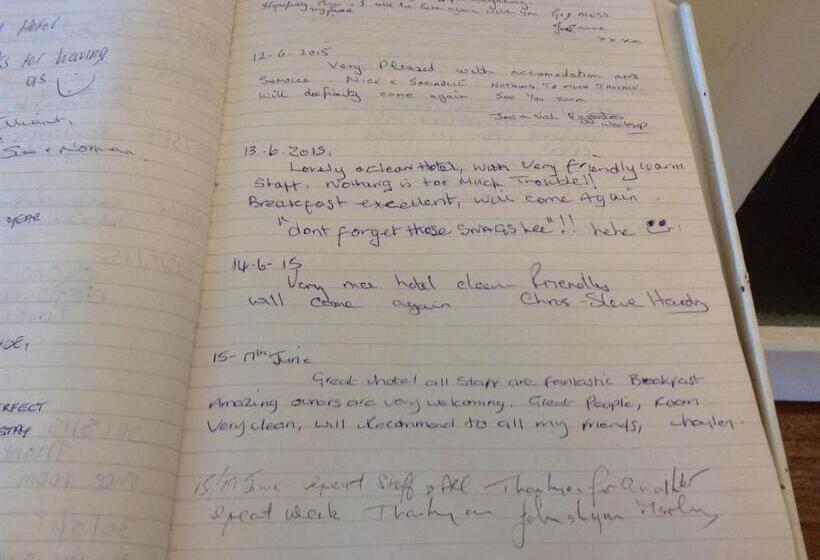 Hotel
for having
us
See & Norman
YEAR
PERFECT
STAY
will be here again with you
xxxx
12-6-2015
Very Pleased with accomodation and
Service. Nice & Sociable NOTHING TO MUCH TROUBLE
will definitly come again See You Soon
Val
13.6.2015.
Lovely & clean Hotel, with very friendly warm
Staff, Nothing is too Much Trouble!!
Breakfast excellent, will come Again.
"dont forget those SNAGS Lee"!! hehe
14-6-15
Very nice hotel clean Friendly
will come again Chris - Steve Hardy
15-17th June
Great hotel all Staff are fantastic Breakfast
Amazing owners are very welcoming. Great People, Room
Very clean, will Recommend to all my friends,
15/19 June Great Staff & All Thankyou for Another
Great Week Thankyou John & Lynn